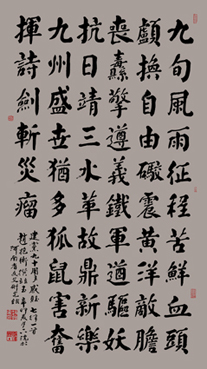 九旬風雨征程苦鮮血頭
顱換自由礮震黃洋敵膽
喪纛擎遵義鐵軍遒驅妖
抗日靖三水革故鼎新樂
九州盛世猶多狐鼠害奮
揮詩劍斬災瘤
建黨九十周年感賦七律一首